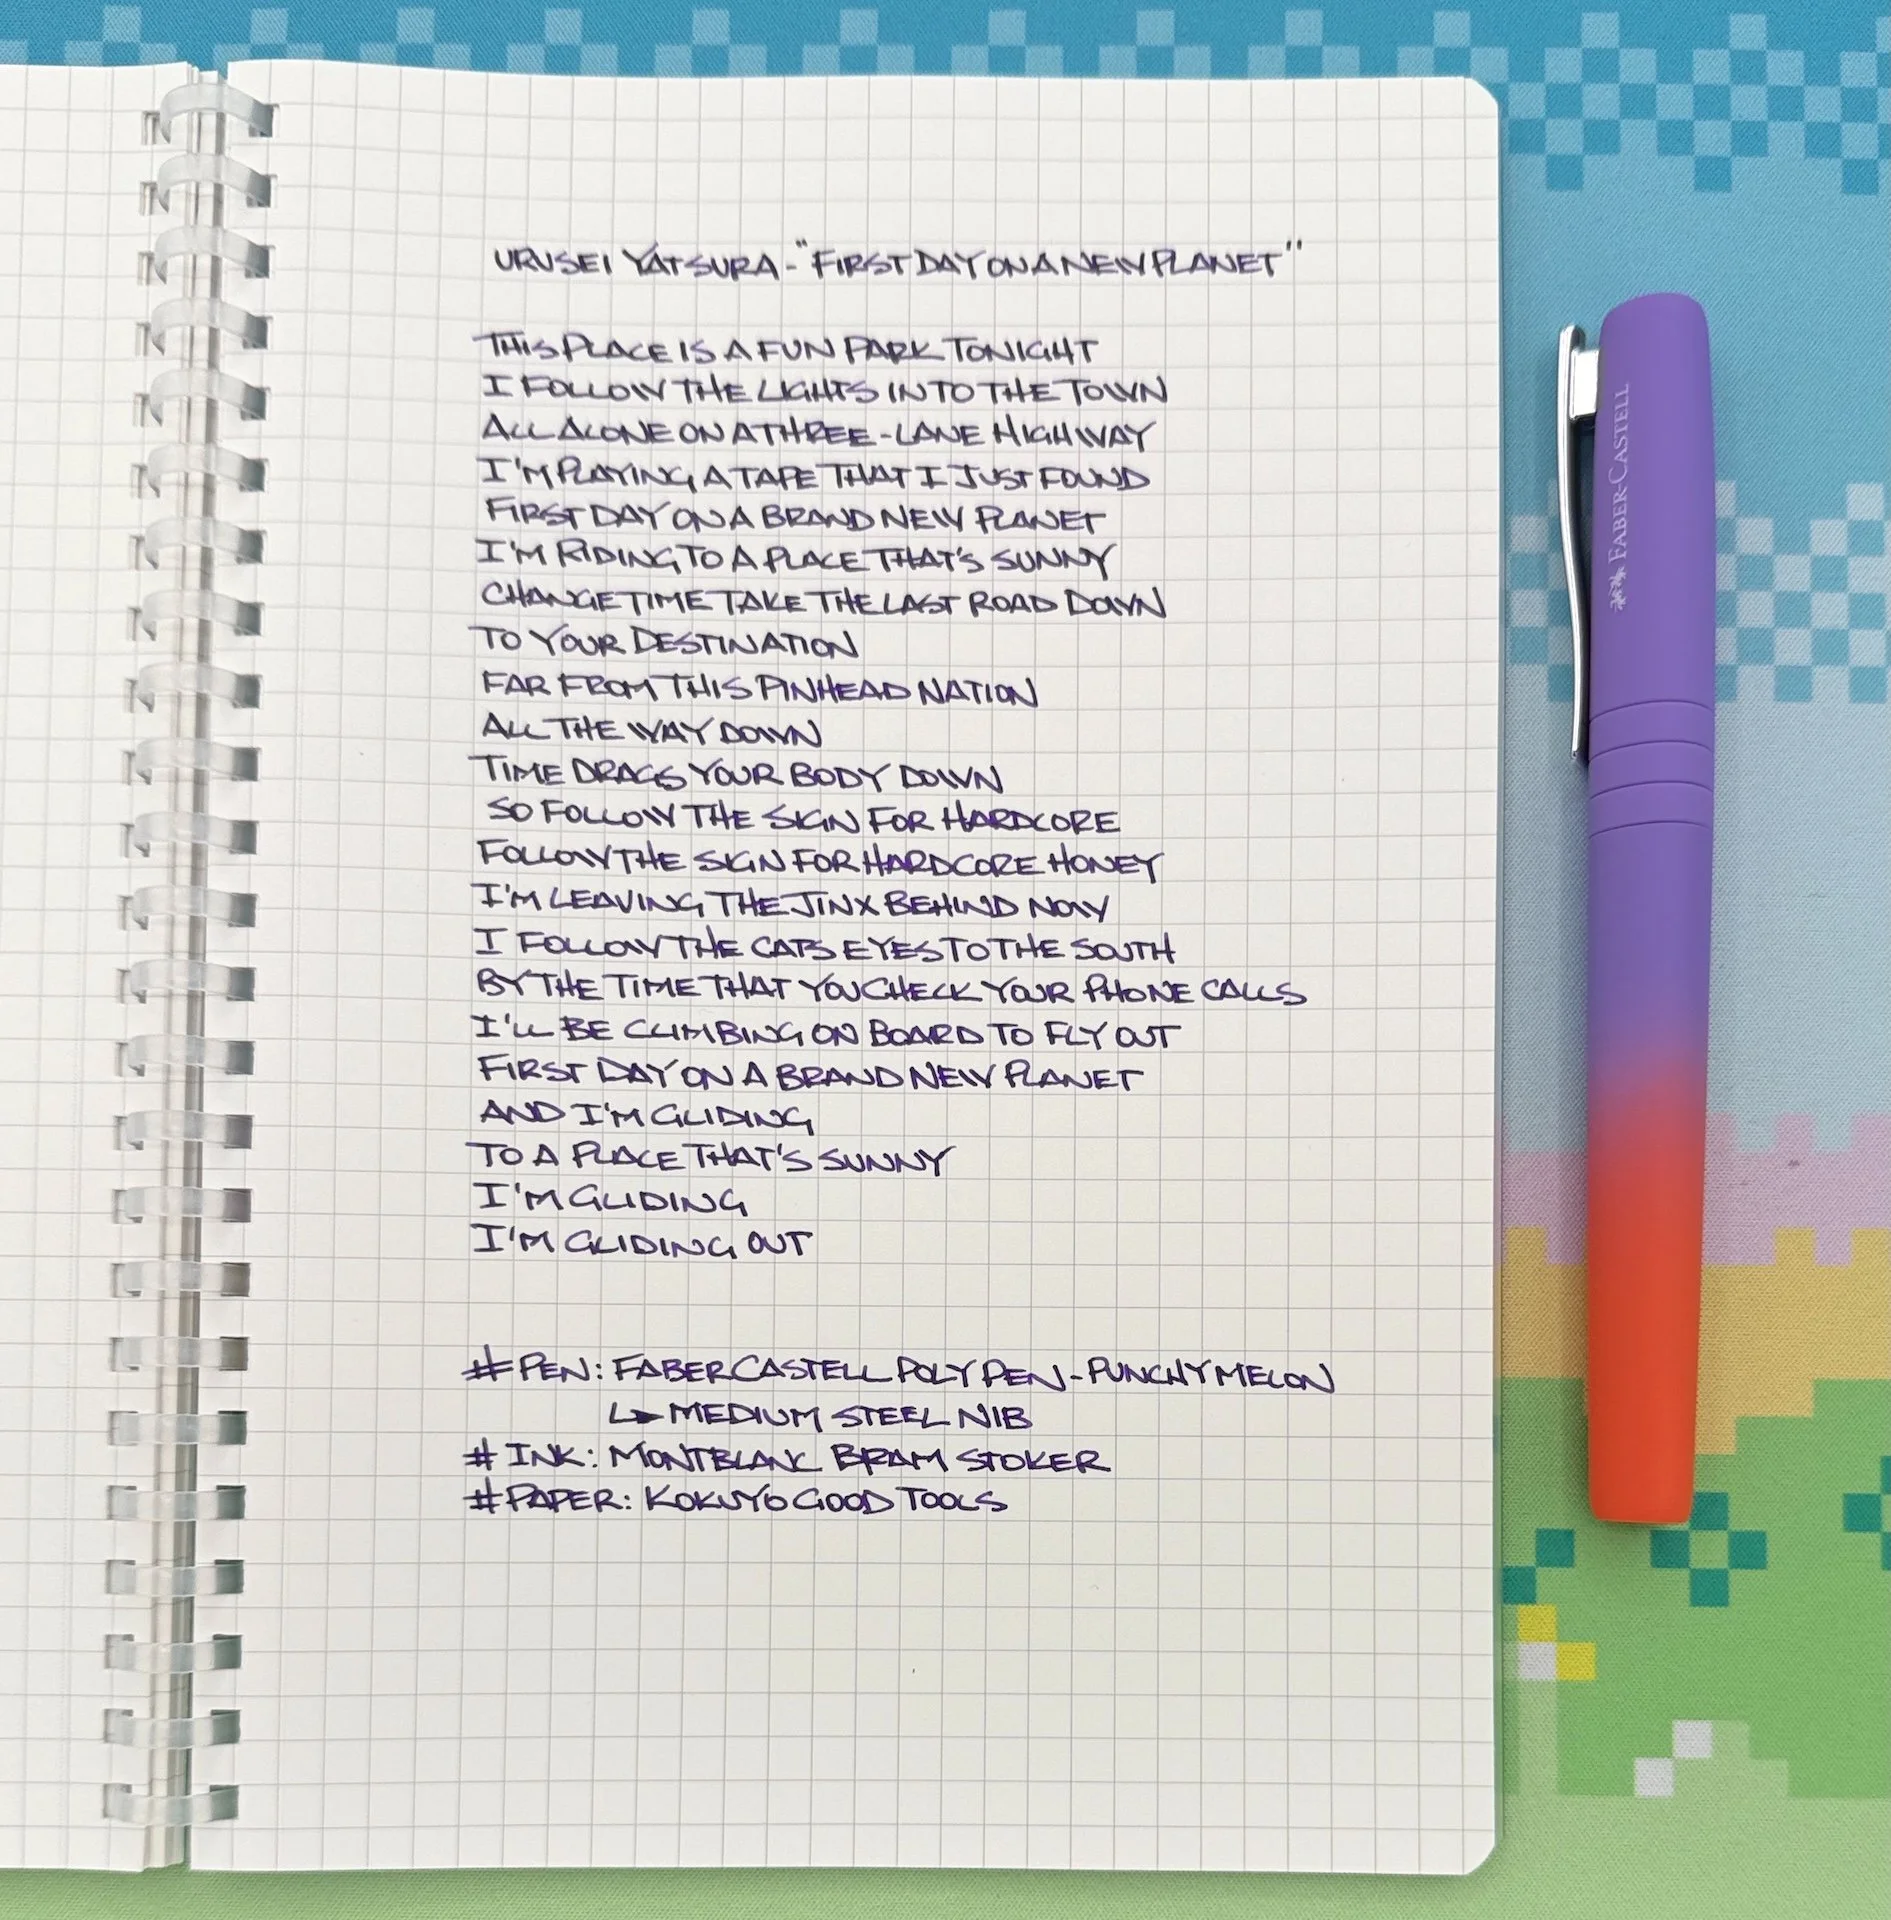 URUSEI YATSURA - "FIRST DAY ON A NEW PLANET"
THIS PLACE IS A FUN PARK TONIGHT
I FOLLOW THE LIGHTS INTO THE TOWN
ALL ALONE ON A THREE-LANE HIGHWAY
I'M PLAYING A TAPE THAT I JUST FOUND
FIRST DAY ON A BRAND NEW PLANET
I'M RIDING TO A PLACE THAT'S SUNNY
CHANGE TIME TAKE THE LAST ROAD DOWN
TO YOUR DESTINATION
FAR FROM THIS PINHEAD NATION
ALL THE WAY DOWN
TIME DRAGS YOUR BODY DOWN
SO FOLLOW THE SIGN FOR HARDCORE
FOLLOW THE SIGN FOR HARDCORE HONEY
I'M LEAVING THE JINX BEHIND NOW
I FOLLOW THE CATS EYES TO THE SOUTH
BY THE TIME THAT YOU CHECK YOUR PHONE CALLS
I'LL BE CLIMBING ON BOARD TO FLY OUT
FIRST DAY ON A BRAND NEW PLANET
AND I'M GLIDING
TO A PLACE THAT'S SUNNY
I'M GLIDING
I'M GLIDING OUT
# PEN: FABER CASTELL POLY PEN - PUNCHY MELON
↳ MEDIUM STEEL NIB
# INK: MONTBLANC BRAM STOKER
# PAPER: KOKUYO GOOD TOOLS
FABER-CASTELL